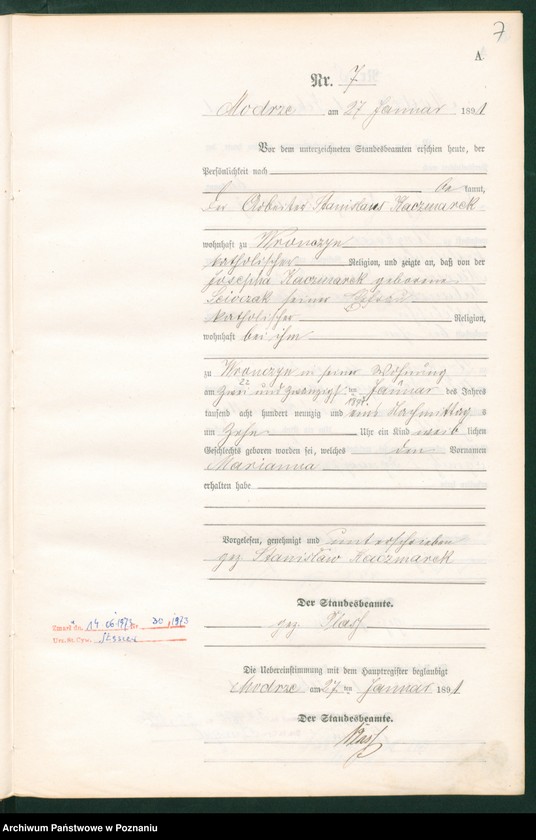 7
A
Nr. 7
Modrze am 27 Januar 1891
Vor dem unterzeichneten Standesbeamten erschien heute, der
Persönlichkeit nach
be kannt,
der Arbeiter Stanislaus Kaczmarek
wohnhaft zu Wronczyn
katholischer Religion, und zeigte an, daß von der
Josepha Kaczmarek geborene
seiner Ehefrau
katholischer Religion,
wohnhaft bei ihm
zu Wronczyn in seiner Wohnung
am zwei und zwanzigsten Januar des Jahres
22 1891.
tausend acht hundert neunzig und eins Nachmittag s
um zehn Uhr ein Kind weib lichen
Geschlechts geboren worden sei, welches den Vornamen
Marianna
erhalten habe
Vorgelesen, genehmigt und unterschrieben
gez Stanisław Kaczmarek
Der Standesbeamte.
gez.
Zmarł dn. 14 06 1973 Nr 30 /1973
Urz. St. Cyw. Stęszew
Die Uebereinstimmung mit dem Hauptregister beglaubigt
Modrze am 27. ten Januar 1891
Der Standesbeamte.
Archiwum Państwowe w Poznaniu